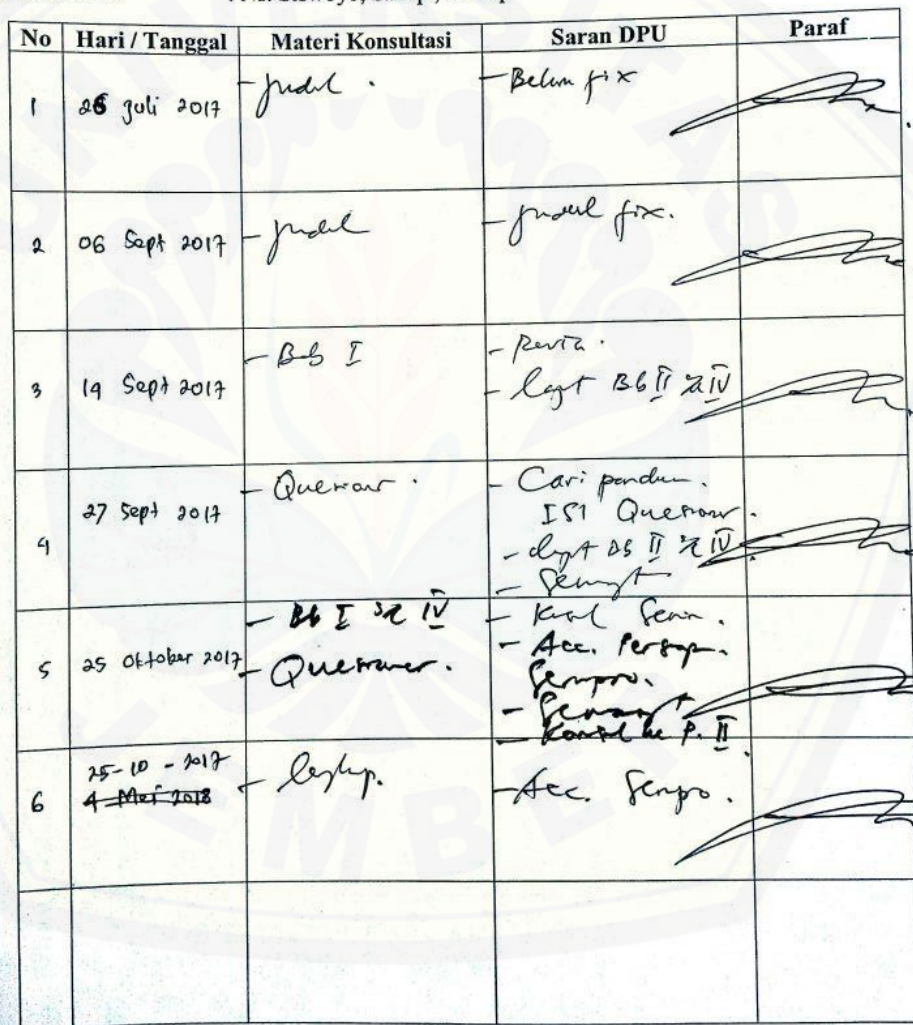 No Hari / Tanggal Materi Konsultasi Saran DPU Paraf
1 26 Juli 2017 - Judul . - Belum fix
2 06 Sept 2017 - Judul - Judul fix.
3 14 Sept 2017 - Bab I - Revisi .
- Bab II IV
4 27 Sept 2017 - Quesioner . - Cari panduan.
ISI Quesioner .
- Bab II IV
- Semangat
5 25 Oktober 2017 - Bab I IV
- Quesioner . - Konsul
- Acc. Persiap.
Sempro.
- Semangat
- Konsul ke P. II
6 25-10-2017
4 Mei 2018 - Lengkap. - Acc. Sempro .
JEMBER